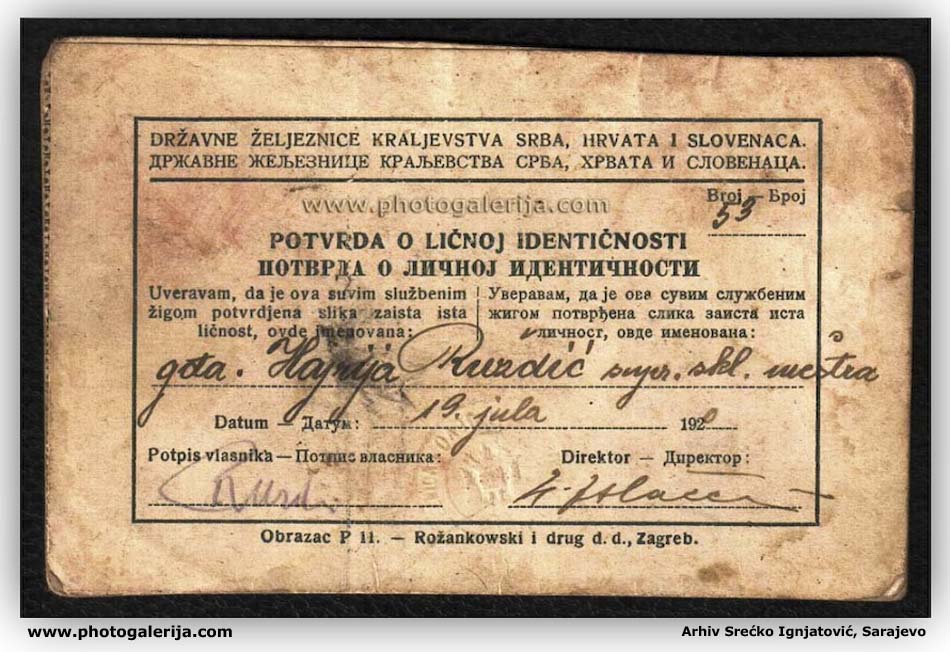 DRŽAVNE ŽELJEZNICE KRALJEVSTVA SRBA, HRVATA I SLOVENACA.
ДРЖАВНЕ ЖЕЉЕЗНИЦЕ КРАЉЕВСТВА СРБА, ХРВАТА И СЛОВЕНАЦА.
www.photogalerija.com
Broj — Број
53
POTVRDA O LIČNOJ IDENTIČNOSTI
ПОТВРДА О ЛИЧНОЈ ИДЕНТИЧНОСТИ
Uveravam, da je ova suvim službenim
žigom potvrdjena slika zaista ista
ličnost, ovde imenovana:
Уверавам, да је ова сувим службеним
жигом потврђена слика заиста иста
личност, овде именована:
gđa. Ruždić skl.
Datum — Датум: 19. jula 192
Potpis vlasnika — Потпис власника:
Direktor — Директор:
Obrazac P 11. — Rožankowski i drug d. d., Zagreb.
www.photogalerija.com
Arhiv Srećko Ignjatović, Sarajevo